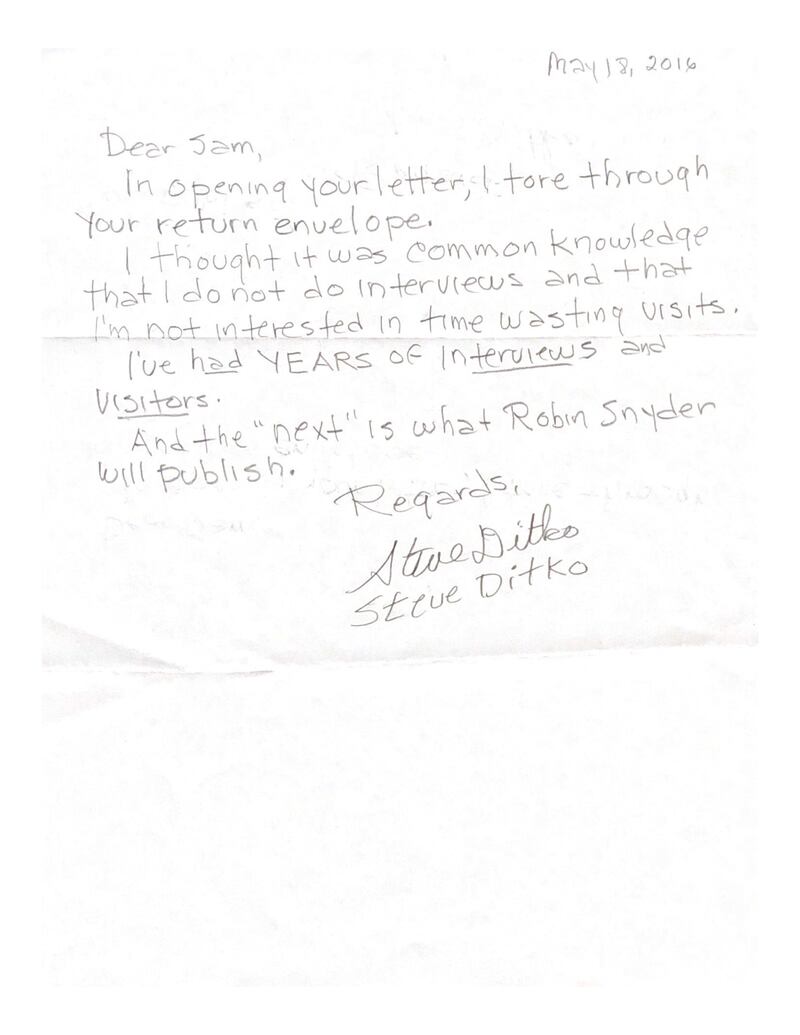 May 18, 2016
Dear Sam,
In opening your letter, I tore through
your return envelope.
I thought it was common knowledge
that I do not do interviews and that
I'm not interested in time wasting visits.
I've had YEARS OF Interviews and
Visitors.
And the "next" is what Robin Snyder
will publish.
Regards,
Steve Ditko
Steve Ditko